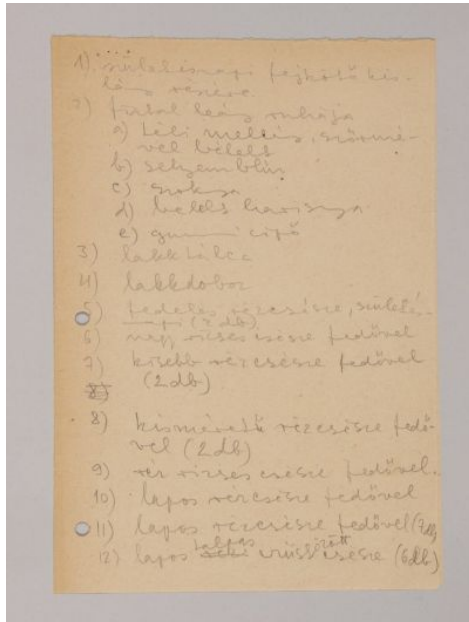 1) születésnapi fejkötő kis-
lány részére
2) fiatal leány ruhája
a) téli mellény, szőrmé-
vel bélelt
b) selyemblúz
c) szoknya
d) bélelt harisnya
e) gumicipő
3) lakktálca
4) lakkdoboz
5) fedeles rézcsésze, születés-
napi (2 db)
6) nagy rizses csésze fedővel
7) kisebb rézcsésze fedővel
(2 db)
8)
8) kisméretű rézcsésze fedő-
vel (2 db)
9) réz rizses csésze fedővel.
10) lapos rézcsésze fedővel
11) lapos rézcsésze fedővel (2 db)
12) lapos talpas csésze (6 db)